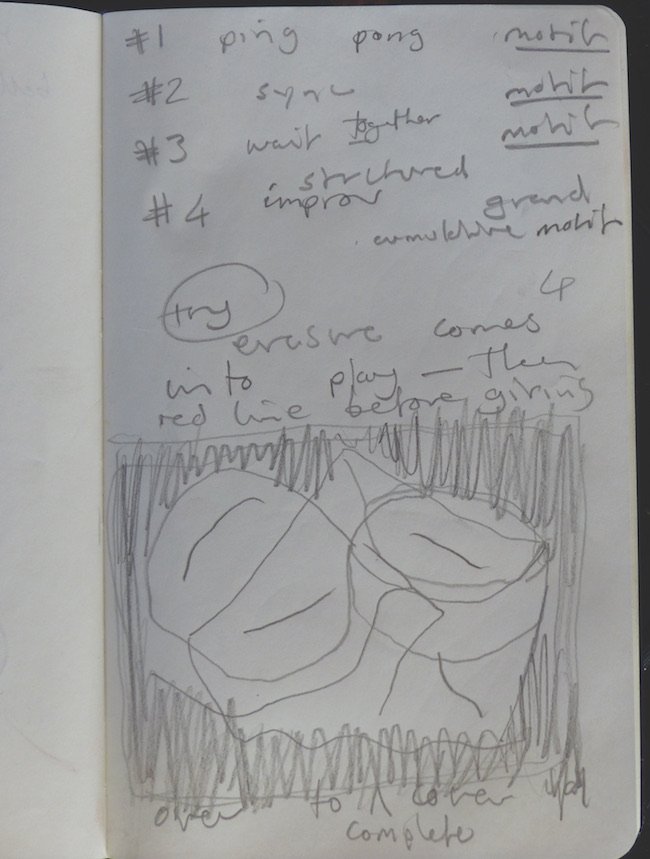 #1 ping pong motif
#2 sync motif
#3 wait together motif
#4 structured improv grand
cumulative motif
4
try
erasure comes
into play — then
red line before giving
over to a cover up
complete